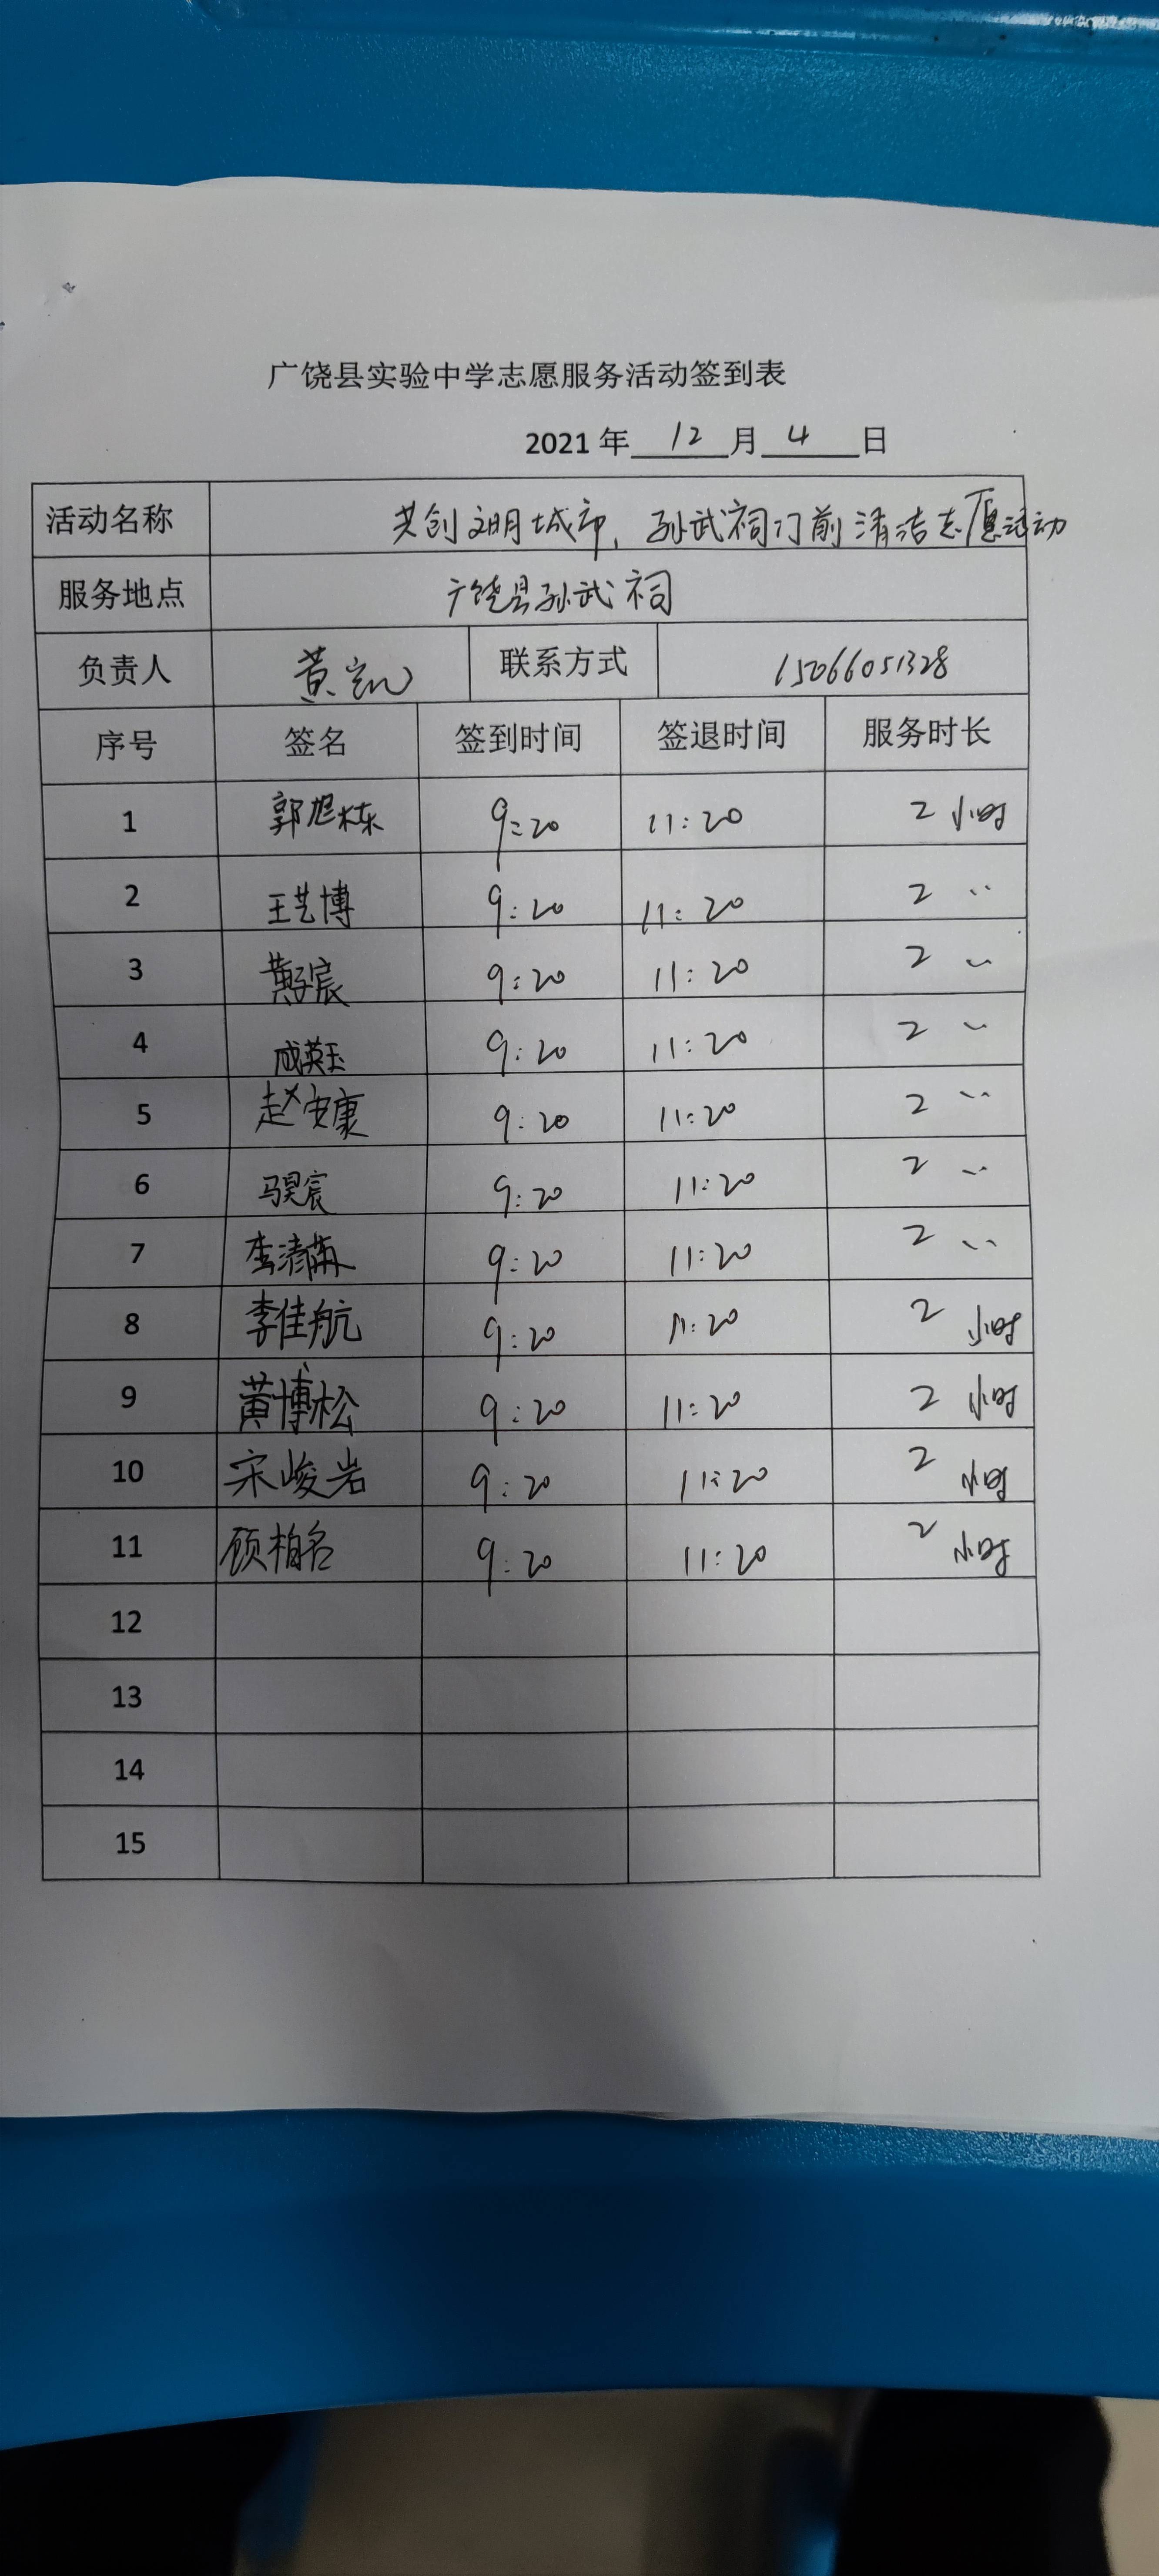 广饶县实验中学志愿服务活动签到表
2021 年 12 月 4 日
活动名称 共创文明城市、孙武祠门前清洁志愿活动
服务地点 广饶县孙武祠
负责人 黄凯 联系方式 15066051328
序号 签名 签到时间 签退时间 服务时长
1 郭旭栋 9:20 11:20 2 小时
2 王艺博 9:20 11:20 2 〃
3 黄子宸 9:20 11:20 2 〃
4 成英玉 9:20 11:20 2 〃
5 赵安康 9:20 11:20 2 〃
6 马昊宸 9:20 11:20 2 〃
7 李清 9:20 11:20 2 〃
8 李佳航 9:20 11:20 2 小时
9 黄博松 9:20 11:20 2 小时
10 宋峻岩 9:20 11:20 2 小时
11 顾柏名 9:20 11:20 2 小时
12
13
14
15